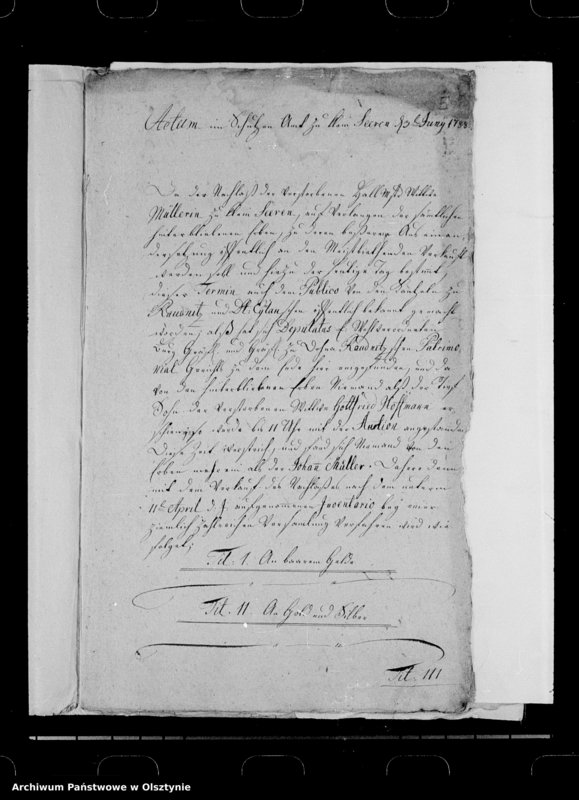 Actum im Schultzen Amt zu klein Seeren d 3t Juny 1788
Da der Nachlaß der verstorbenen Wittwe
Müllerin zu klein Seeren, auf Verlangen der sämtlichen
hinterbliebenen Erben, zu deren beßeren Aus einan
dersetzung öffentlich an den Meistbiethenden Verkauft
werden soll und hiezu der heutige Tag bestimmt,
dieser Termin auch dem Publico von den Cantzeln zu
Raudnitz und Dt. Eylau schon öffentlich bekannt gemacht
worden, alß hat sich Deputatus
Burg Gräfl. und Gräfl. zu Dohna Raudnitzschen Patrimo,
nial Gerichts zu dem Ende hier eingefunden, und da
von den hinterbliebenen Erben Niemand alß der
Sohn der verstorbenen Wittwe Gottfried Hoffmann er
schienen, wurde bis 11 Uhr mit der Auction angestanden
Diese Zeit verstrich, und fand sich Niemand von den
Erben mehr ein als der Johan Müller. Daher denn
mit dem Verkauf des Nachlaßes nach dem unterm
11t April d. J. aufgenommenen Inventario bey einer
ziemlich zahlreichen Versamlung Verfahren wird wie
folget;
Tit. 1. An baarem Gelde
Tit. 11. An Gold und Silber
Tit. 111
Archiwum Państwowe w Olsztynie